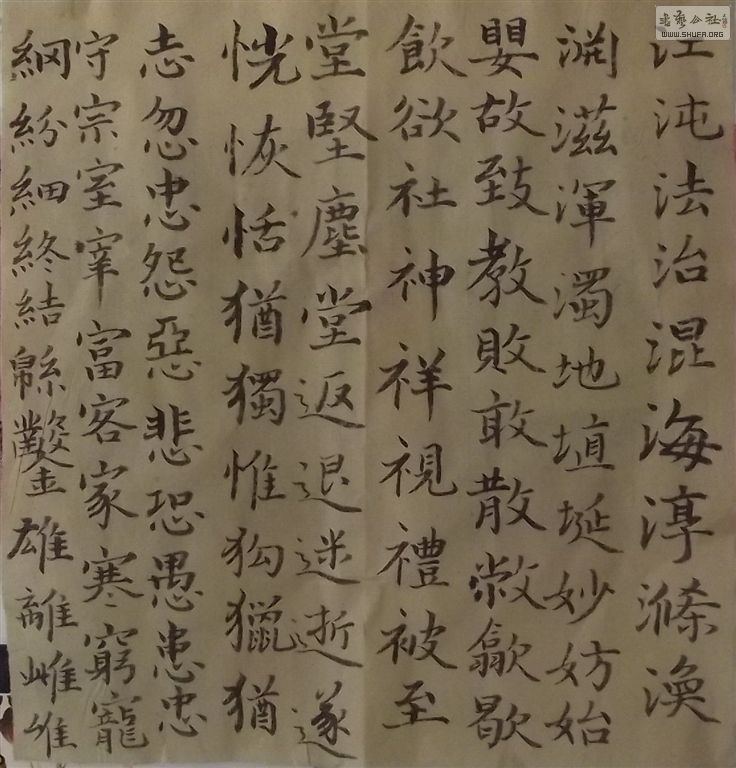 江沌法治混海淳滌渙
渊滋渾濁地埴埏妙妨始
嬰故致教敗敢散敝歙歇
飲欲社神祥視禮被至
堂堅塵堂返退迷逝遂
恍恢恬猶獨惟狗獵猶
志忽忠怨惡悲恐愚患忠
守宗室宰富客家寒窮寵
綱紛細終結緜鑿雄離雌雄
書藝公社
WWW.SHUFA.ORG